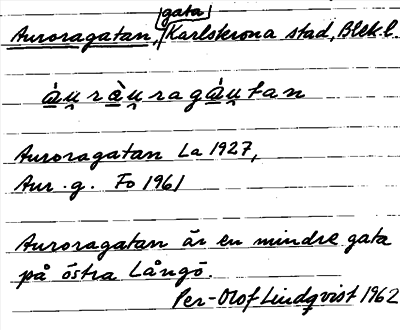 Auroragatan, gata Karlskrona stad, Blek.l.
àu̯ràu̯ragàu̯tan
Auroragatan La 1927,
Aur.g. Fo 1961
Auroragatan är en mindre gata
på östra Långö.
Per-Olof Lindqvist 1962